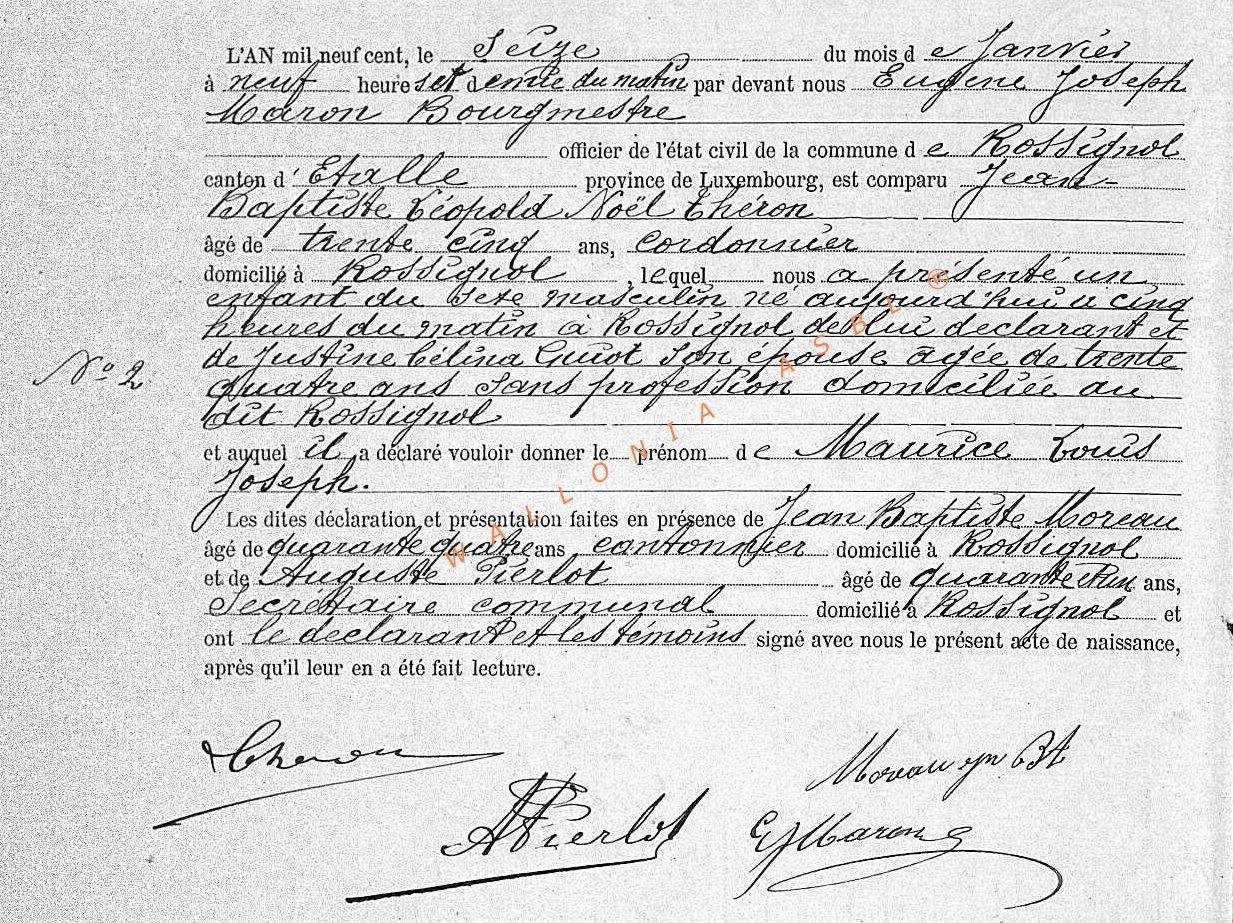 L'AN mil neuf cent, le Seize du mois de Janvier
à neuf heures et demie du matin par devant nous Eugène Joseph
Maron Bourgmestre
officier de l'état civil de la commune de Rossignol
canton d'Etalle province de Luxembourg, est comparu Jean-
Baptiste Léopold Noël Théron
âgé de trente cinq ans, Cordonnier
domicilié à Rossignol, lequel nous a présenté un
enfant du sexe masculin né aujourd'hui à cinq
heures du matin à Rossignol de lui déclarant et
de Justine Célina Guiot son épouse agée de trente
N° 2
quatre ans sans profession domiciliée au
dit Rossignol
et auquel il a déclaré vouloir donner le prénom de Maurice Louis
Joseph.
Les dites déclaration et présentation faites en présence de Jean Baptiste Moreau
âgé de quarante quatre ans cantonnier domicilié à Rossignol
et de Auguste Pierlot âgé de quarante et un ans,
Secrétaire communal domicilié à Rossignol et
ont le déclarant et les témoins signé avec nous le présent acte de naissance,
après qu'il leur en a été fait lecture.
WALLONIA ASBL ®
Theron
Moreau Bt
APierlot
EJMaron